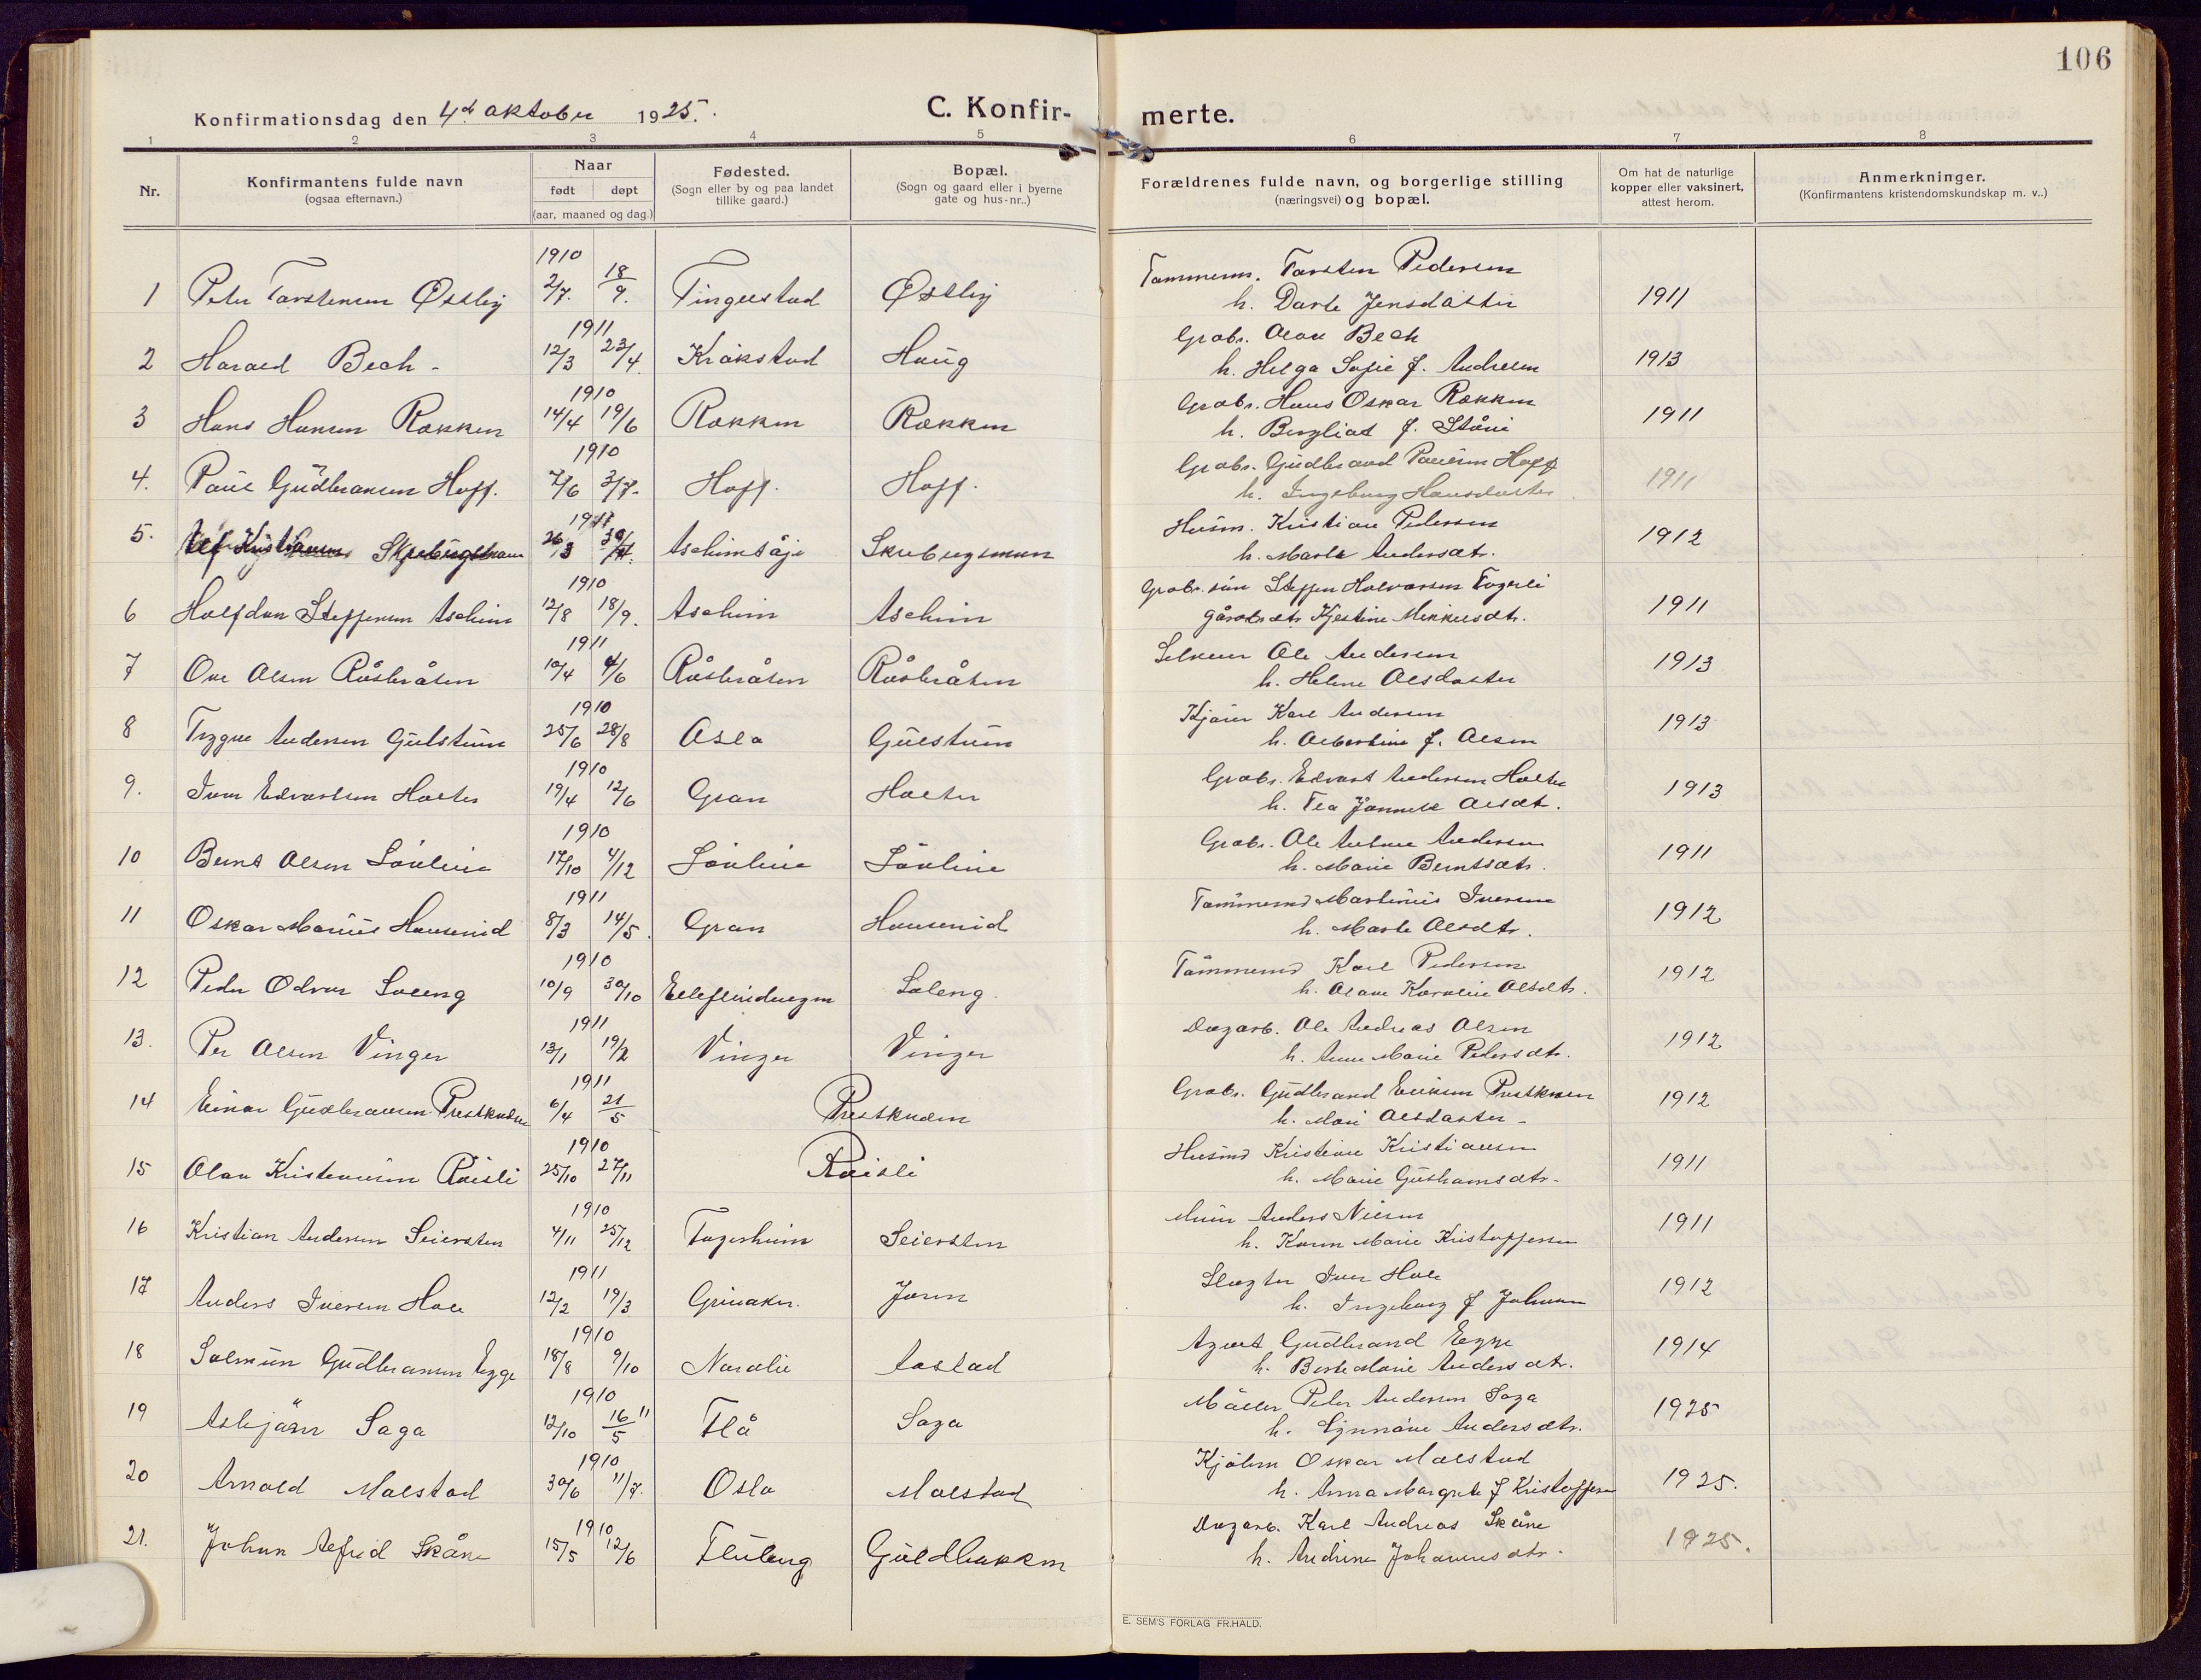 106
Konfirmationsdag den 4de oktober 1925.
C. Konfir-
merte.
1 2 3 4 5 6 7 8
Nr.
Konfirmantens fulde navn
(ogsaa efternavn.)
Naar
født døpt
(aar, maaned og dag.)
Fødested.
(Sogn eller by og paa landet
tillike gaard.)
Bopæl.
(Sogn og gaard eller i byerne
gate og hus-nr..)
Forældrenes fulde navn, og borgerlige stilling
(næringsvei) og bopæl.
Om hat de naturlige
kopper eller vaksinert,
attest herom.
Anmerkninger.
(Konfirmantens kristendomskundskap m. v..)
1910
1 Peter Torstensen Østby 2/7. 18/9. Tingelstad Østby
Tømmerm. Torsten Pedersen
h. Dorte Jensdatter 1911
1911
2 Harald Bech 12/3 23/4. Kråkstad Haug
Grdbr. Olav Bech
h. Helga Sofie f. Andresen 1913
1910
3 Hans Hansen Rækken 14/4 19/6 Rækken Rækken
Grdbr. Hans Oskar Rækken
h. Bergliot f. 1911
1910
4. Paul Gudbransen Hoff. 7/6 3/7. Hoff. Hoff.
Grdbr. Gudbrand Paulsen Hoff
h. Ingeborg Hansdatter 1911
1911
5. Kristiansen 26/3 30/4.
Husm. Kristian Pedersen
h. Marte Andersdtr. 1912
1910
6 Halfdan Steffensen Aschim 12/8 18/9. Aschim Aschim
Grdbr. søn Steffen Halvorsen Fagerli
gårdbr dtr Kjestine Mikkelsdtr. 1911
1911
7 Ove Olsen Råsbråten 10/4 4/6 Råsbråten Råsbråten
Ole Andersen
h. Helene Olsdatter 1913
1910
8 Trygve Andersen Gulstuen 25/6 28/8 Oslo Gulstuen
Karl Andersen
h. Albertine f. Olsen 1913
1910
9. Iver Edvartsen Holter 19/4 12/6 Gran Holter
Grdbr. Edvart Andersen Holter
h. Tea Olsdt. 1913
1910
10 Bernt Olsen Sørlien 17/10 4/12 Sørlien Sørlien
Grdbr. Ole Anton Andersen
h. Marie Berntsdtr. 1911
1911
11 Oskar Marius Hauseneid 8/3 14/5. Gran Hauseneid
Tømmermd Martinius Iversen
h. Marte Olsdtr. 1912
1910
12 Peder Odvar Soleng 10/9 30/10 Soleng.
Tømmermd Karl Pedersen
h. Karoline Olsdtr. 1912
1911
13. Per Olsen Vinger 13/1 19/2 Vinger Vinger
Dagarb. Ole Andreas Olsen
h. Anne Marie Pedersdtr. 1912
1911
14 Einar Gudbransen Prestkvern 6/4 21/5 Prestkvern
Grdbr. Gudbrand Eriksen Prestkvern
h. Mari Olsdatter 1912
1910
15 Olav Kristiansen Roisli 25/10 27/11 Roisli
Husmd Kristian Kristiansen
h. Marie dtr. 1911
1910
16 Kristian Andersen Seiersten 4/11 25/12 Fagerheim Seiersten
Anders Nilsen
h. Karen Marie Kristoffersen 1911
1911
17 Anders Iversen Hole 12/2 19/3 Grinaker. Joren
Slagter Iver Hole
h. Ingeborg f Johnsen 1912
1910
18 Solmun Gudbransen Egge 18/8 9/10 Nordlie Aastad
Agent Gudbrand Egge
h. Berte Marie Andersdtr. 1914
1910
19 Asbjørn Saga 12/10 16/5 11 Flå Saga
Møller Peter Andersen Saga
h. Andersdtr. 1925
1910
20 Arnold Molstad 30/6 11/7. Oslo Molstad
Oskar Molstad
h. Anna Margrete f Kristoffersen 1925.
1910
21. Johan Alfred Skåne 15/5 12/6 Guldbakken
Dagarb. Karl Andreas Skåne
h. Andrine Johannesdtr. 1925.
E. SEM'S FORLAG FR.HALD.